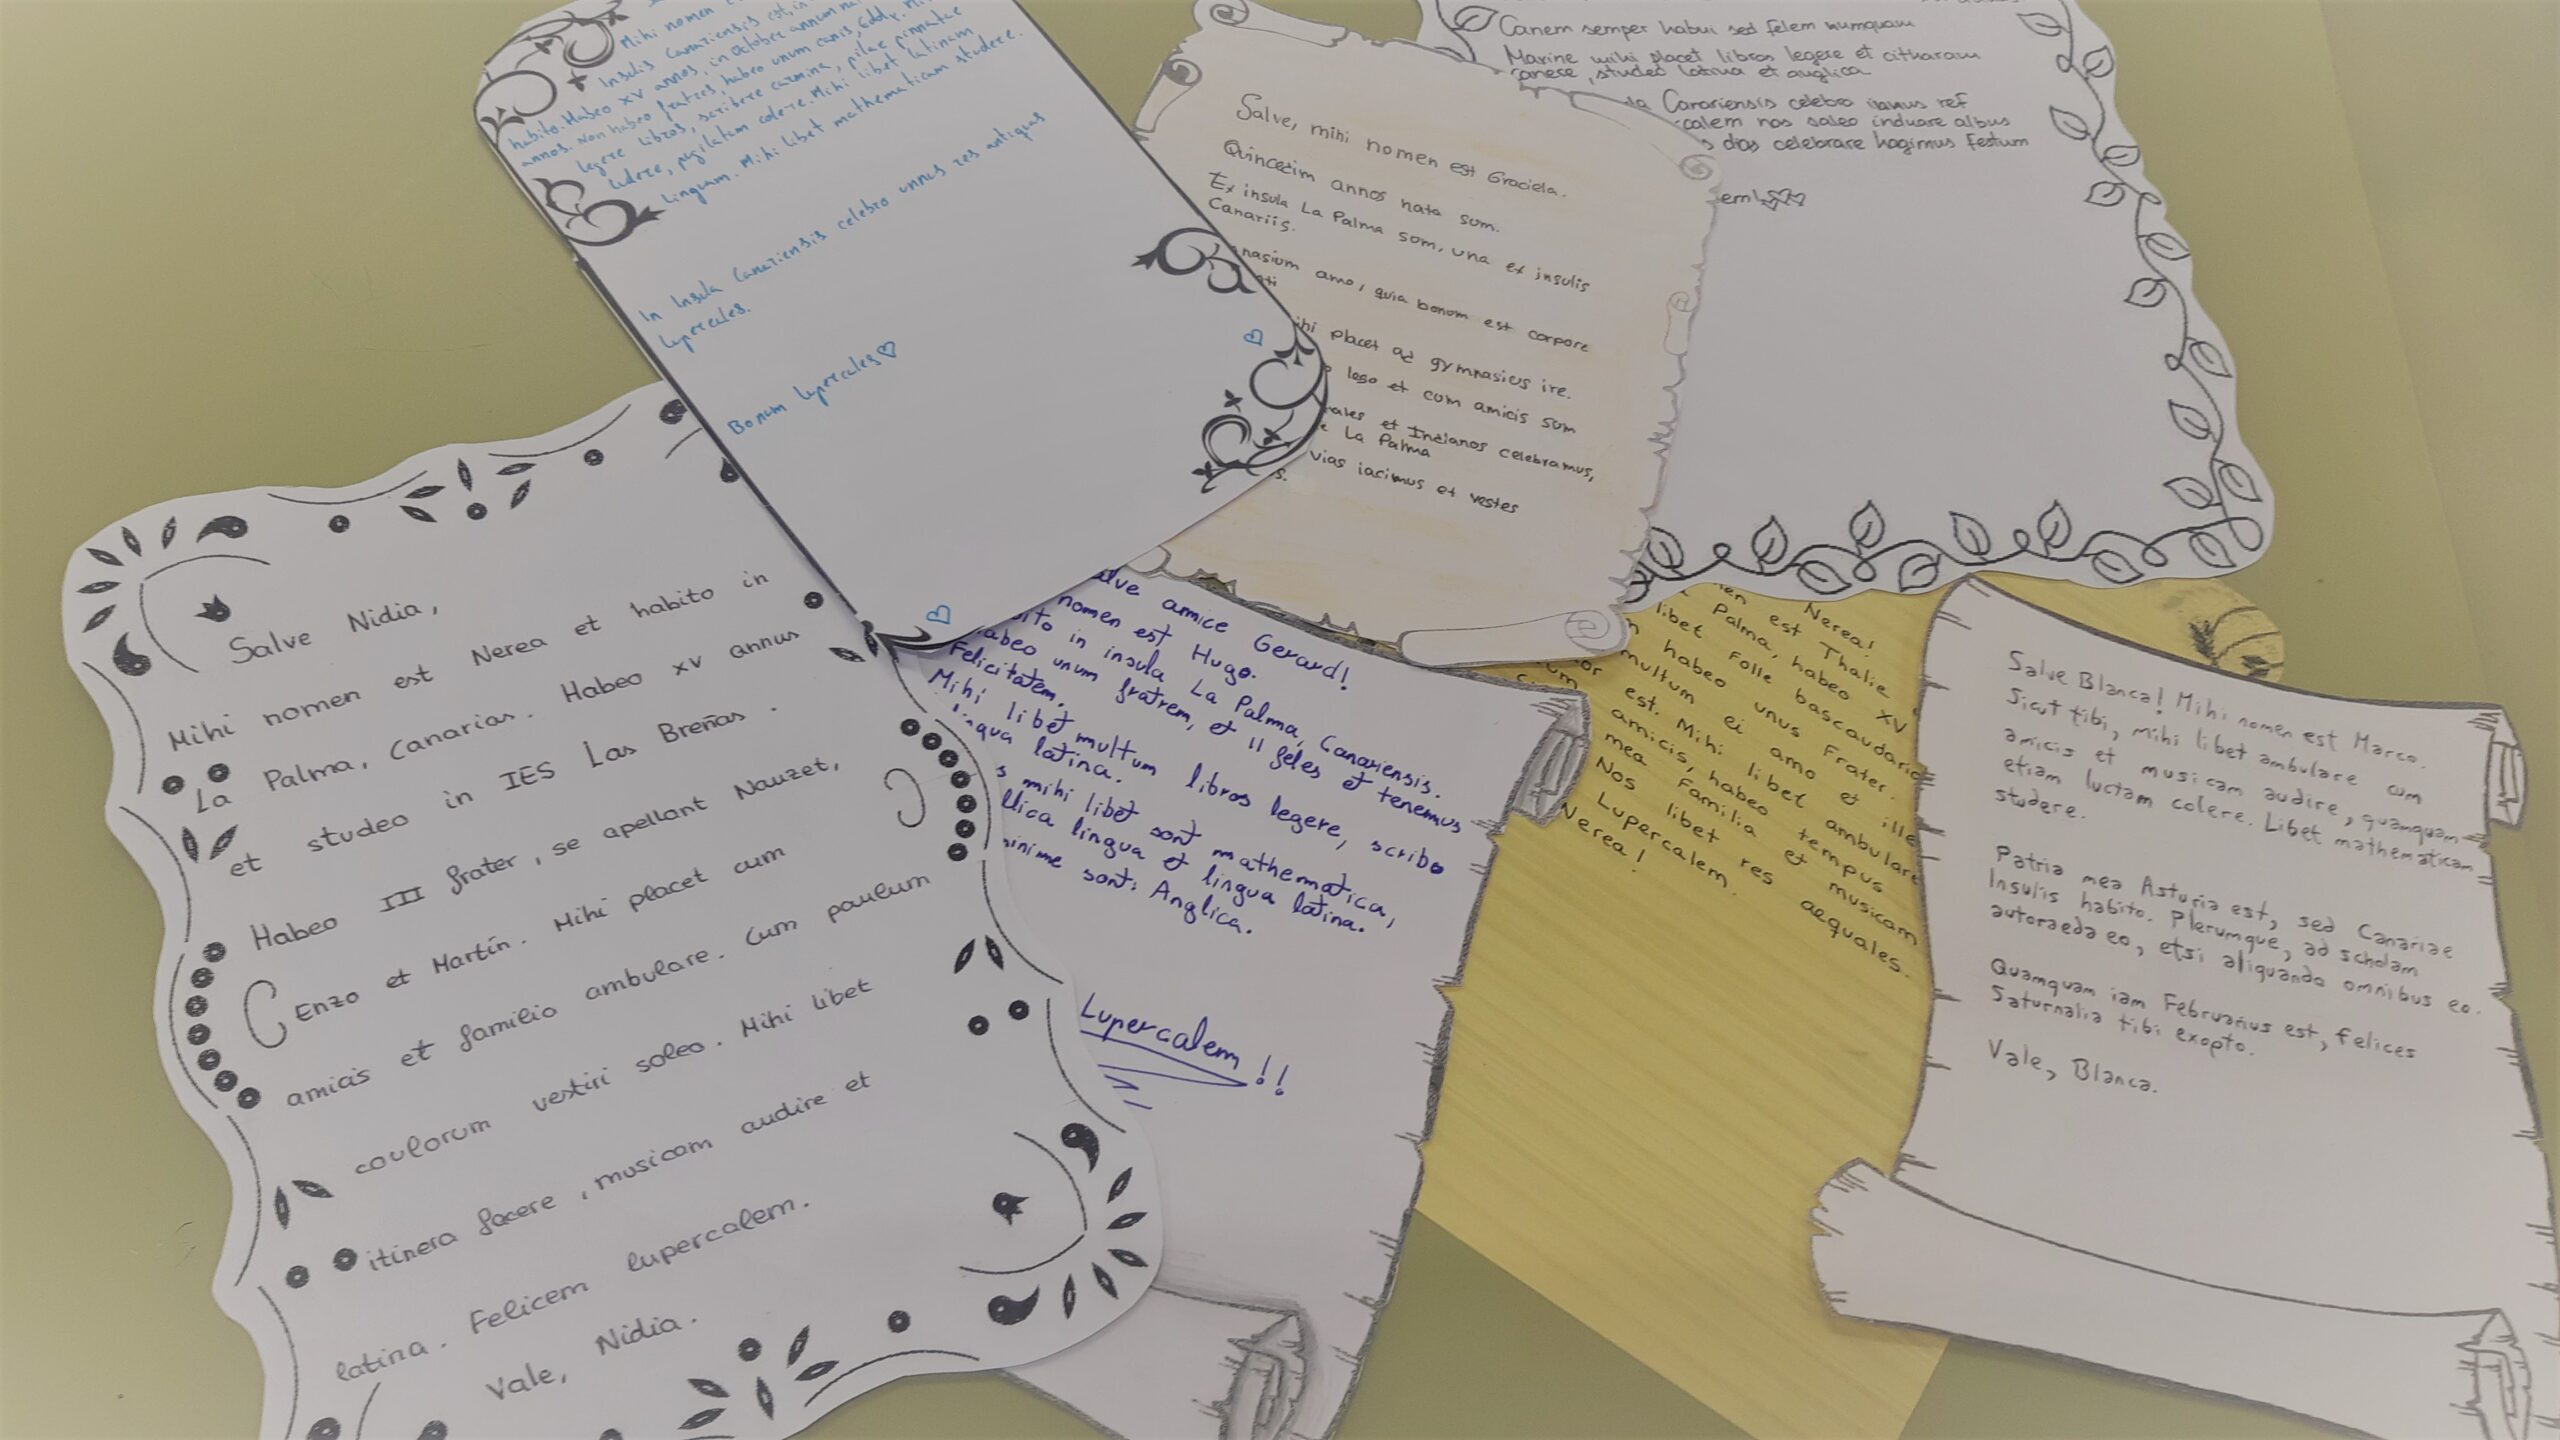 Mihi nomen
Insulis Canariensis est, in
habito. Habeo XV annos, in October annum
annos. Non habeo fratres, habeo unum canis, Eddy.
legere libros, scribere carmina, pilae pinnatae
ludere, pugilatum colere. Mihi libet latinam
linguam. Mihi libet mathematicam studere.
In Insula Canariensis celebro unnus res antiquas
lupercales.
Bonum lupercales♡
Salve, mihi nomen est Graciela.
Quincetim annos nata sum.
Ex insula La Palma som, una ex insulis
Canariis.
nasium amo, quia bonum est corpore
placet ad gymnasius ire.
lego et cum amicis sum
et Indianos celebramus,
La Palma
vias iacimus et vestes
Canem semper habui sed felem numquam
Marine mihi placet libros legere et citharam
canere, studeo latina et anglica
Canariensis celebro
calem nos soleo induare albus
dias celebrare hagimus Festium
em!
Salve Nidia,
Mihi nomen est Nerea et habito in
La Palma, Canarias. Habeo XV annus
et studeo in IES Las Breñas.
Habeo III frater, se apellant Nauzet,
Enzo et Martín. Mihi placet cum
amicis et familia ambulare. Cum paulum
coulorum vestiri soleo. Mihi libet
itinera facere, musicam audire et
latina. Felicem lupercalem.
Vale, Nidia.
alve amice Gerard!
nomen est Hugo.
ito in insula La Palma, Canariensis.
abeo unum fratrem, et II feles et tenemus
Felicitatem.
Mihi libet multum libros legere, scribo
lingua latina.
s mihi libet sont mathematica,
llica lingua et lingua latina.
minime sont: Anglica.
Lupercalem!!
Nerea!
en est Thalie
Palma, habeo XV
libet Folle bascaudario
habeo unus Frater.
multum ei amo et ille
or est. Mihi libet ambulare
um amicis, habeo tempus
mea Familia et musicam
Nos libet res aequales.
Lupercalem.
Nerea!
Salve Blanca! Mihi nomen est Marco.
Sicut tibi, mihi libet ambulare cum
amicis et musicam audire, quamquam
etiam luctam colere. Libet mathematicam
studere.
Patria mea Asturia est, sed Canariae
Insulis habito. Plerumque, ad scholam
autoraeda eo, etsi aliquando omnibus eo.
Quamquam iam Februarius est, felices
Saturnalia tibi exopto.
Vale, Blanca.